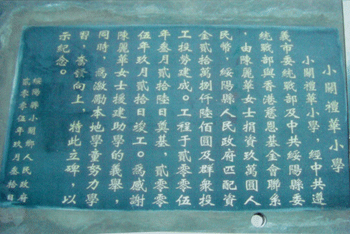 小關禮華小學
小關禮華小學，經中共遵
義市委統戰部及中共綏陽縣委
統戰部與香港慈恩基金會聯系
，由陳麗華女士捐資玖萬圓人
民幣，綏陽縣人民政府匹配資
金貳拾萬捌仟陸佰圓及群衆投
工投勞建成。工程于貳零零伍
年叁月貳拾日奠基，貳零零
伍年玖月貳拾日竣工。為感謝
陳麗華女士援建助學的義舉，
同時，為激勵本地學童努力學
習，奮發向上，特此立碑，以
示紀念。
綏陽縣小關鄉人民政府
貳零零伍年玖月叁拾日